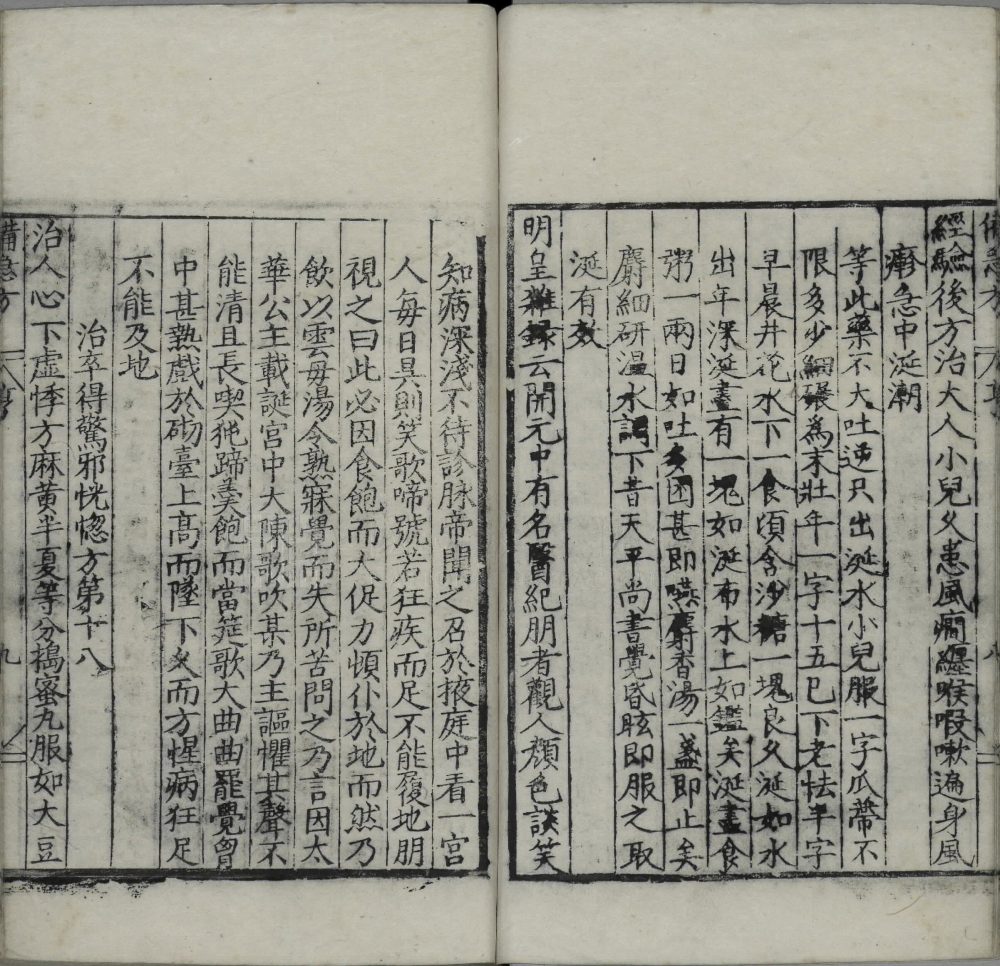 經驗後方治大人小兒久患風癇纏喉㗋嗽遍身風
疹急中涎潮
等此藥不大吐逆只出涎水小兒服一字瓜蔕不
限多少細碾爲末壯年一字十五已下老怯半字
早晨井花水下一食頃含沙糖一塊良久涎如水
出年深涎盡有一塊如涎布水上如鑑矣涎盡食
粥一兩日如吐多困甚即嚥麝香湯一盞即止矣
麝細研温水調下昔天平尚書覺昏眩即服之取
涎有效
明皇雜録云開元中有名醫紀朋者觀人顔色談笑
知病深淺不待診脉帝聞之召於掖庭中看一宮
人每日昃則笑歌啼號若狂疾而足不能履地朋
視之曰此必因食飽而大促力頓仆於地而然乃
飲以雲母湯令熟寐覺而失所苦問之乃言因太
華公主載誕宮中大陳歌吹某乃主謳懼其聲不
能清且長喫㹠蹄羹飽而當筵歌大曲曲罷覺胷
中甚熱戲於砌臺上高而墜下久而方惺病狂足
不能及地
治卒得驚邪恍惚方第十八
治人心下虛悸方麻黃半夏等分擣蜜丸服如大豆
備急方
九